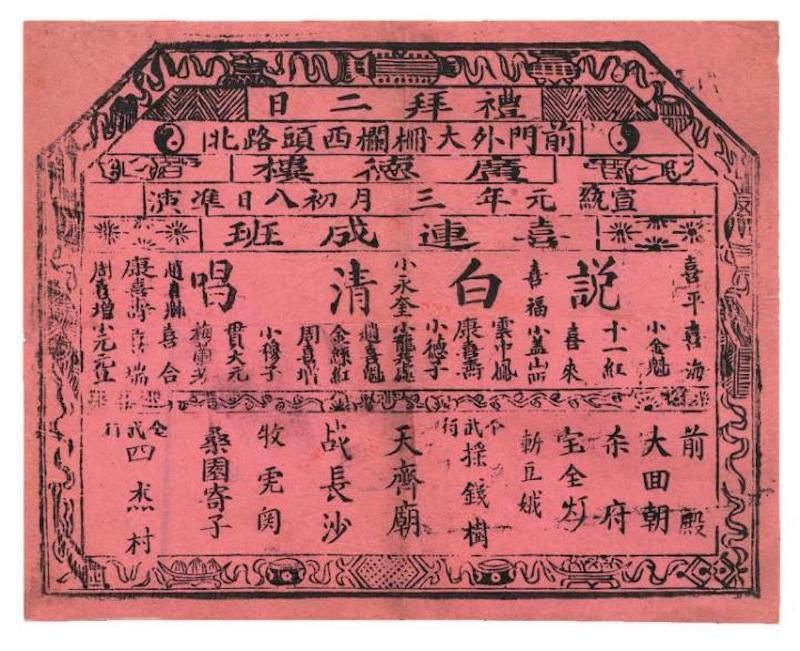 禮拜二日
前門外大柵欄西頭路北
廣德樓
宣統元年三月初八日准演
喜連成班
說白清唱
喜平
喜海
十一紅
喜來
喜福
康喜壽
小德子
小永奎
趙喜魁
金絲紅
周喜增
小穆子
貫大元
梅蘭芳
喜合
康喜壽
喜瑞
周喜增
前殿
大回朝
杀府
宝全灯
斬豆娥
武行
採錢樹
天齊廟
战長沙
牧虎関
桑園寄子
全武行
四杰村